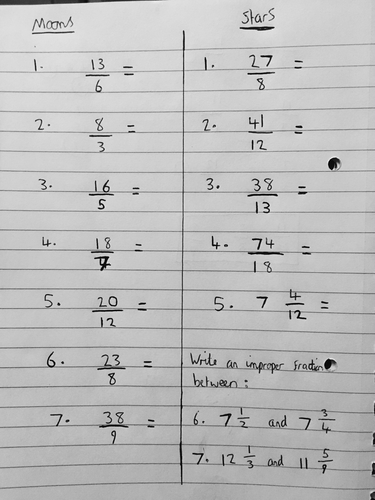 Moons
1. 13/6 =
2. 8/3 =
3. 16/5 =
4. 18/ =
5. 20/12 =
6. 23/8 =
7. 38/9 =
Stars
1. 27/8 =
2. 41/12 =
3. 38/13 =
4. 74/18 =
5. 7 4/12 =
Write an improper fraction
between:
6. 7 1/2 and 7 3/4
7. 12 1/3 and 11 5/9